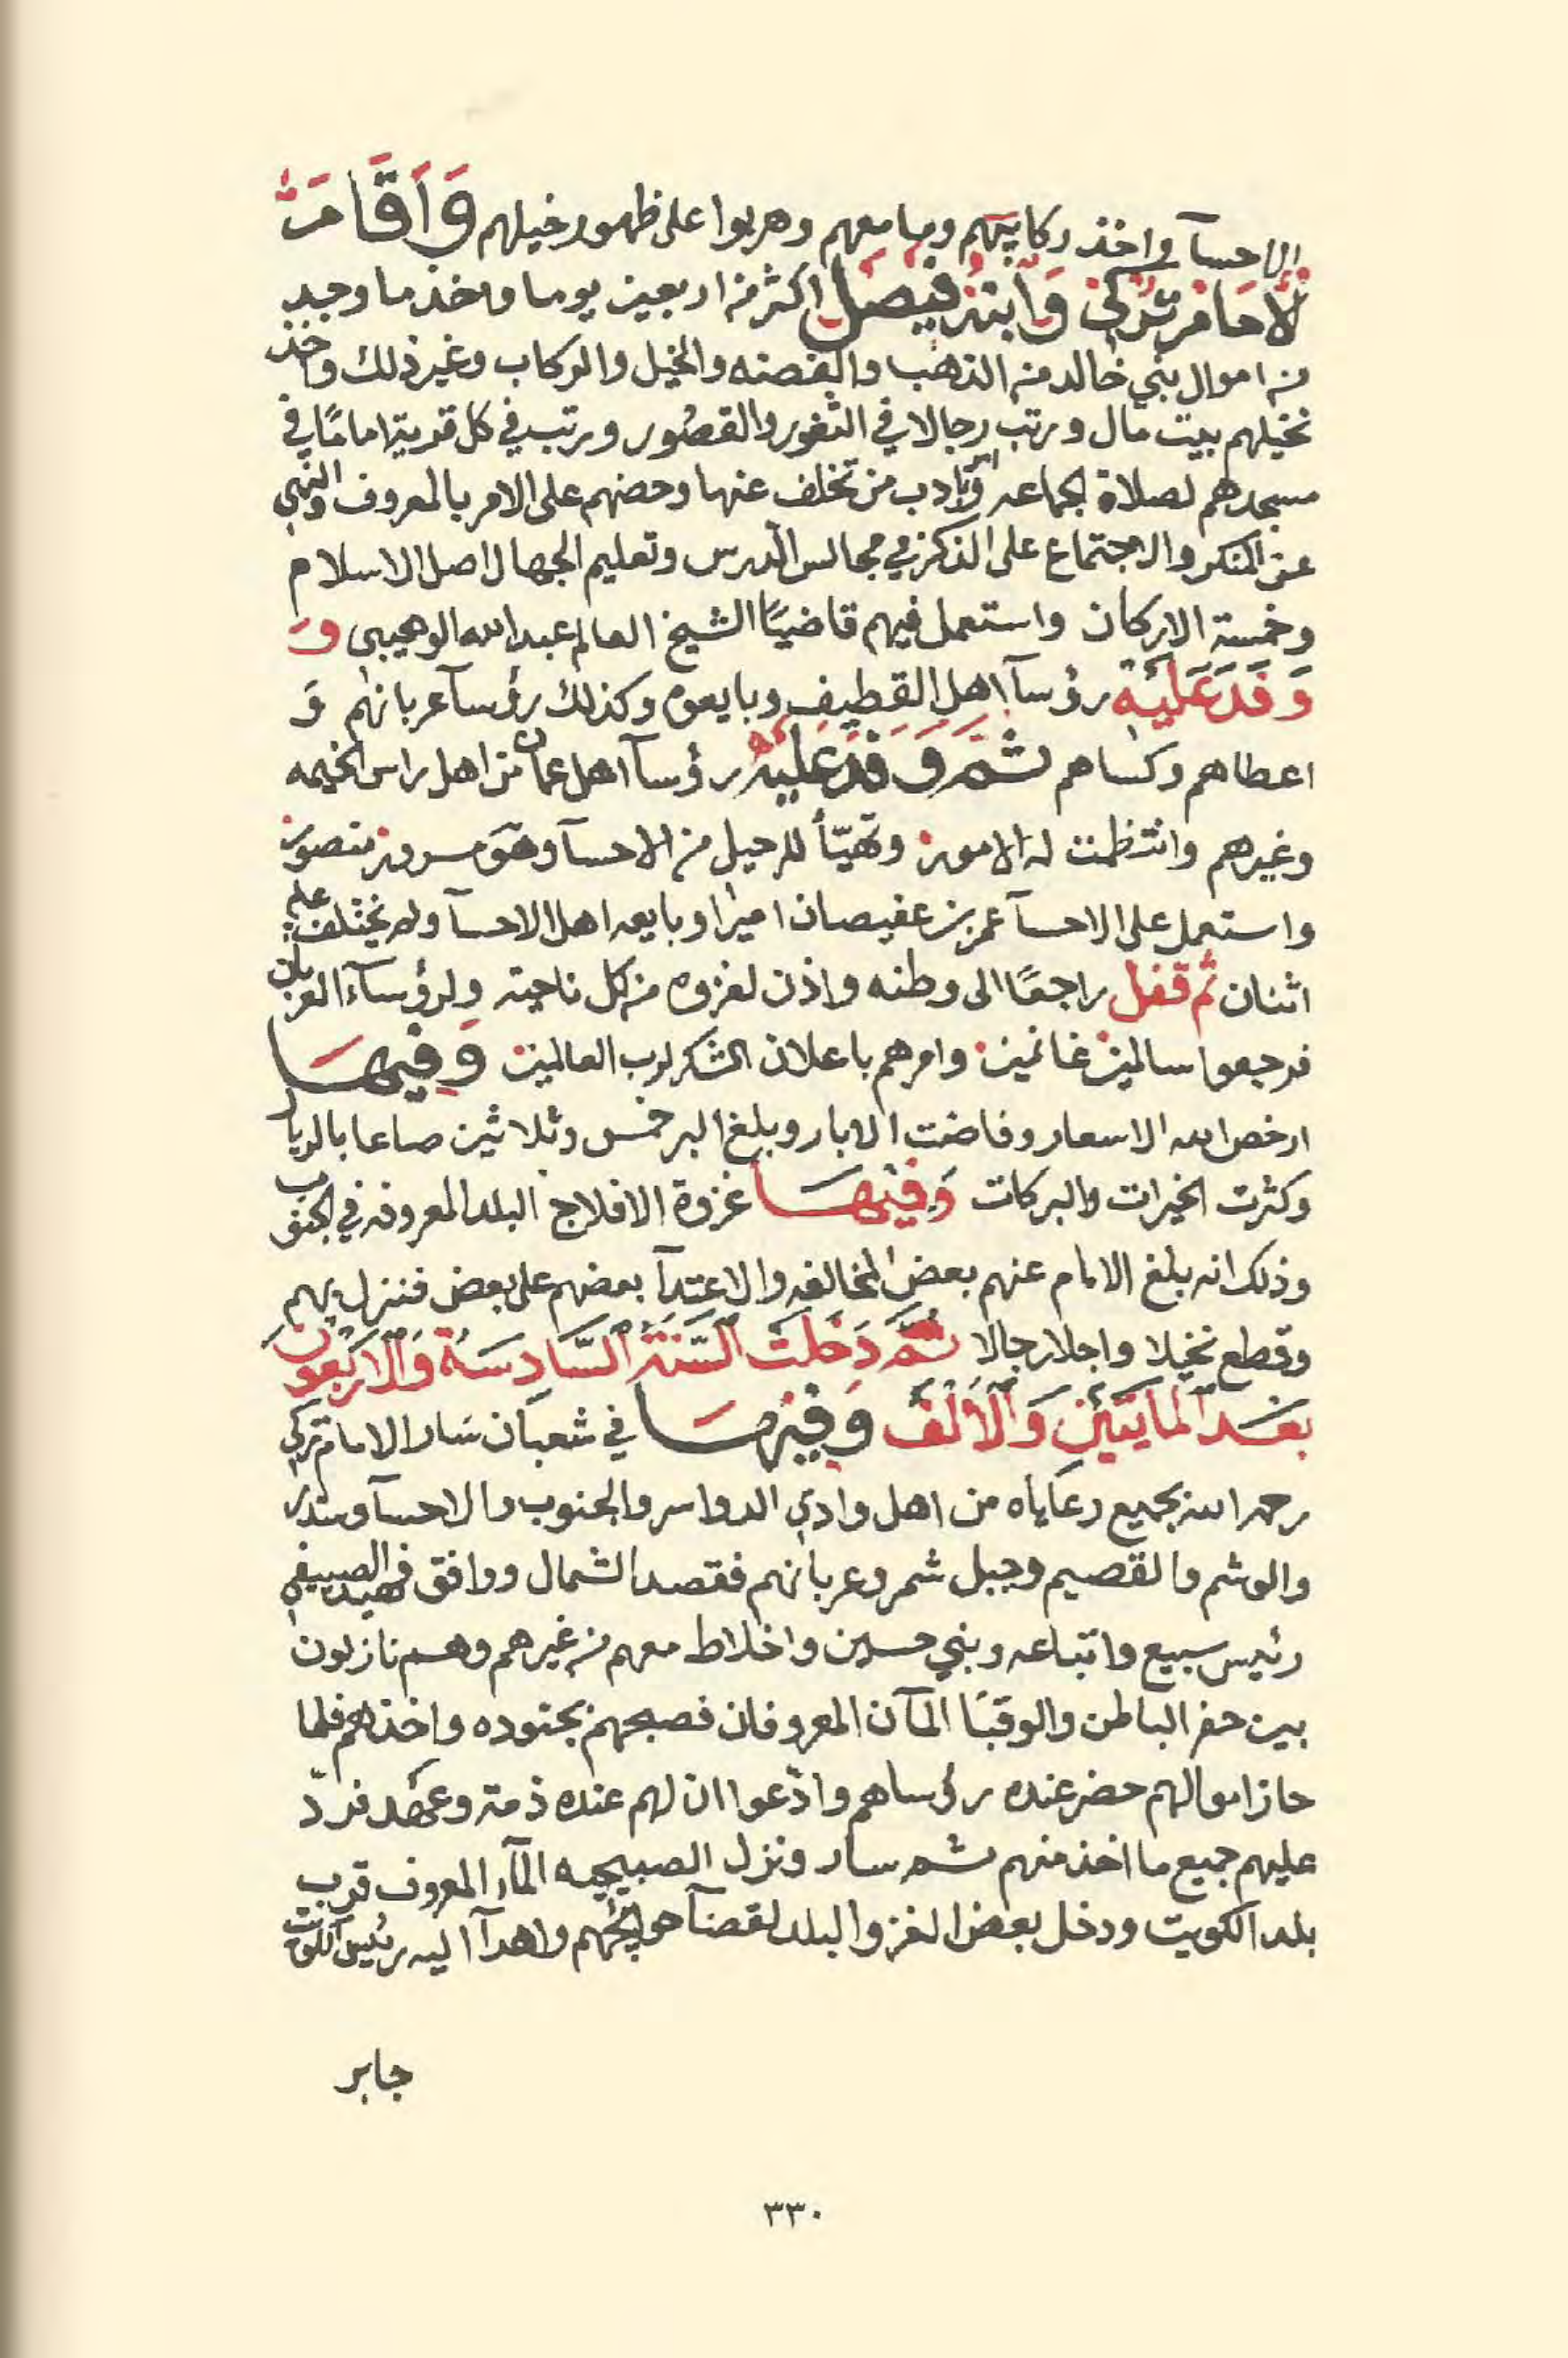 الاحسآ واخذ ركايبهم وما معهم وهربوا على ظهور خيلهم وَاَقَامَ
الامام تركي وابنه فيصل اكثر من اربعين يوما واخذ ما وجد
من اموال بني خالد من الذهب والفضه والخيل والركاب وغير ذلك واخذ
نخيلهم بيت مال ورتب رجالا في الثغور والقصُور ورتب في كل قرية امامًا في
مسجدهم لصلاة الجماعه وتادب من تخلف عنها وحضهم على الامر بالمعروف والنهي
عن المنكر والاجتماع على الذكر في مجالس الدرس وتعليم الجهال اصل الاسلام
وخمسة الاركان واستعمل فيهم قاضيًا الشيخ العالم عبدالله الوهيبي وَ
وَفَدَ عَلَيْهِ رؤسآ اهل القطيف وبايعوه وكذلك رؤسآ عربانهم وَ
اعطاهم وكساهم ثم وَفَدَ عليه رؤسآ اهل عمان من اهل راس الخيمه
وغيرهم وانتظمت له الامور وتهيّأ للرحيل من الاحسآ وهو مسرور منصور
واستعمل على الاحسآ عمر بن عفيصان اميرا وبايعه اهل الاحسآ ولم يختلف عليه
اثنان ثم قفل راجعًا الى وطنه واذن لغزوه من كل ناحية ولرؤسآء العربان
فرجعوا سالمين غانمين وامرهم باعلان الشكر لرب العالمين وَفِيهَا
ارخص الله الاسعار وفاضت الابار وبلغ البر خمس وثلاثين صاعا بالريال
وكثرت الخيرات والبركات وَفِيْهَا غزوة الافلاج البلد المعروفه في الجنوب
وذلك انه بلغ الامام عنهم بعض المخالفه والاعتدآ بعضهم على بعض فنزل بهم
وقطع نخيلا واجلا رجالا ثُمَّ دَخَلَتْ السَّنَةُ السَّادِسَةُ وَالاَرْبَعُونَ
بَعْدَ المَايَتَيْنِ وَالأَلْفْ وَفِيْهَا في شعبان سَار الامام تركي
رحمه الله بجميع رعاياه من اهل وادي الدواسر والجنوب والاحسآ وسدير
والوشم والقصيم وجبل شمر وعربانهم فقصد الشمال ووافق فهيد الصييفي
رئيس سبيع واتباعه وبني حسين واخلاط معهم من غيرهم وهم نازلون
بين حفر الباطن والوقبَا المآن المعروفان فصبحهم بجنوده واخذهم فلما
حاز اموالهم حضر عنده رؤساهم وادّعوا ان لهم عنده ذمة وعهد فردّ
عليهم جميع ما اخذ منهم ثم سار ونزل الصبيحيه المآء المعروف قرب
بلد الكويت ودخل بعض الغزو البلد لقضآ حوايجهم واهدآ اليه رئيس الكويت
جابر
٣٣٠